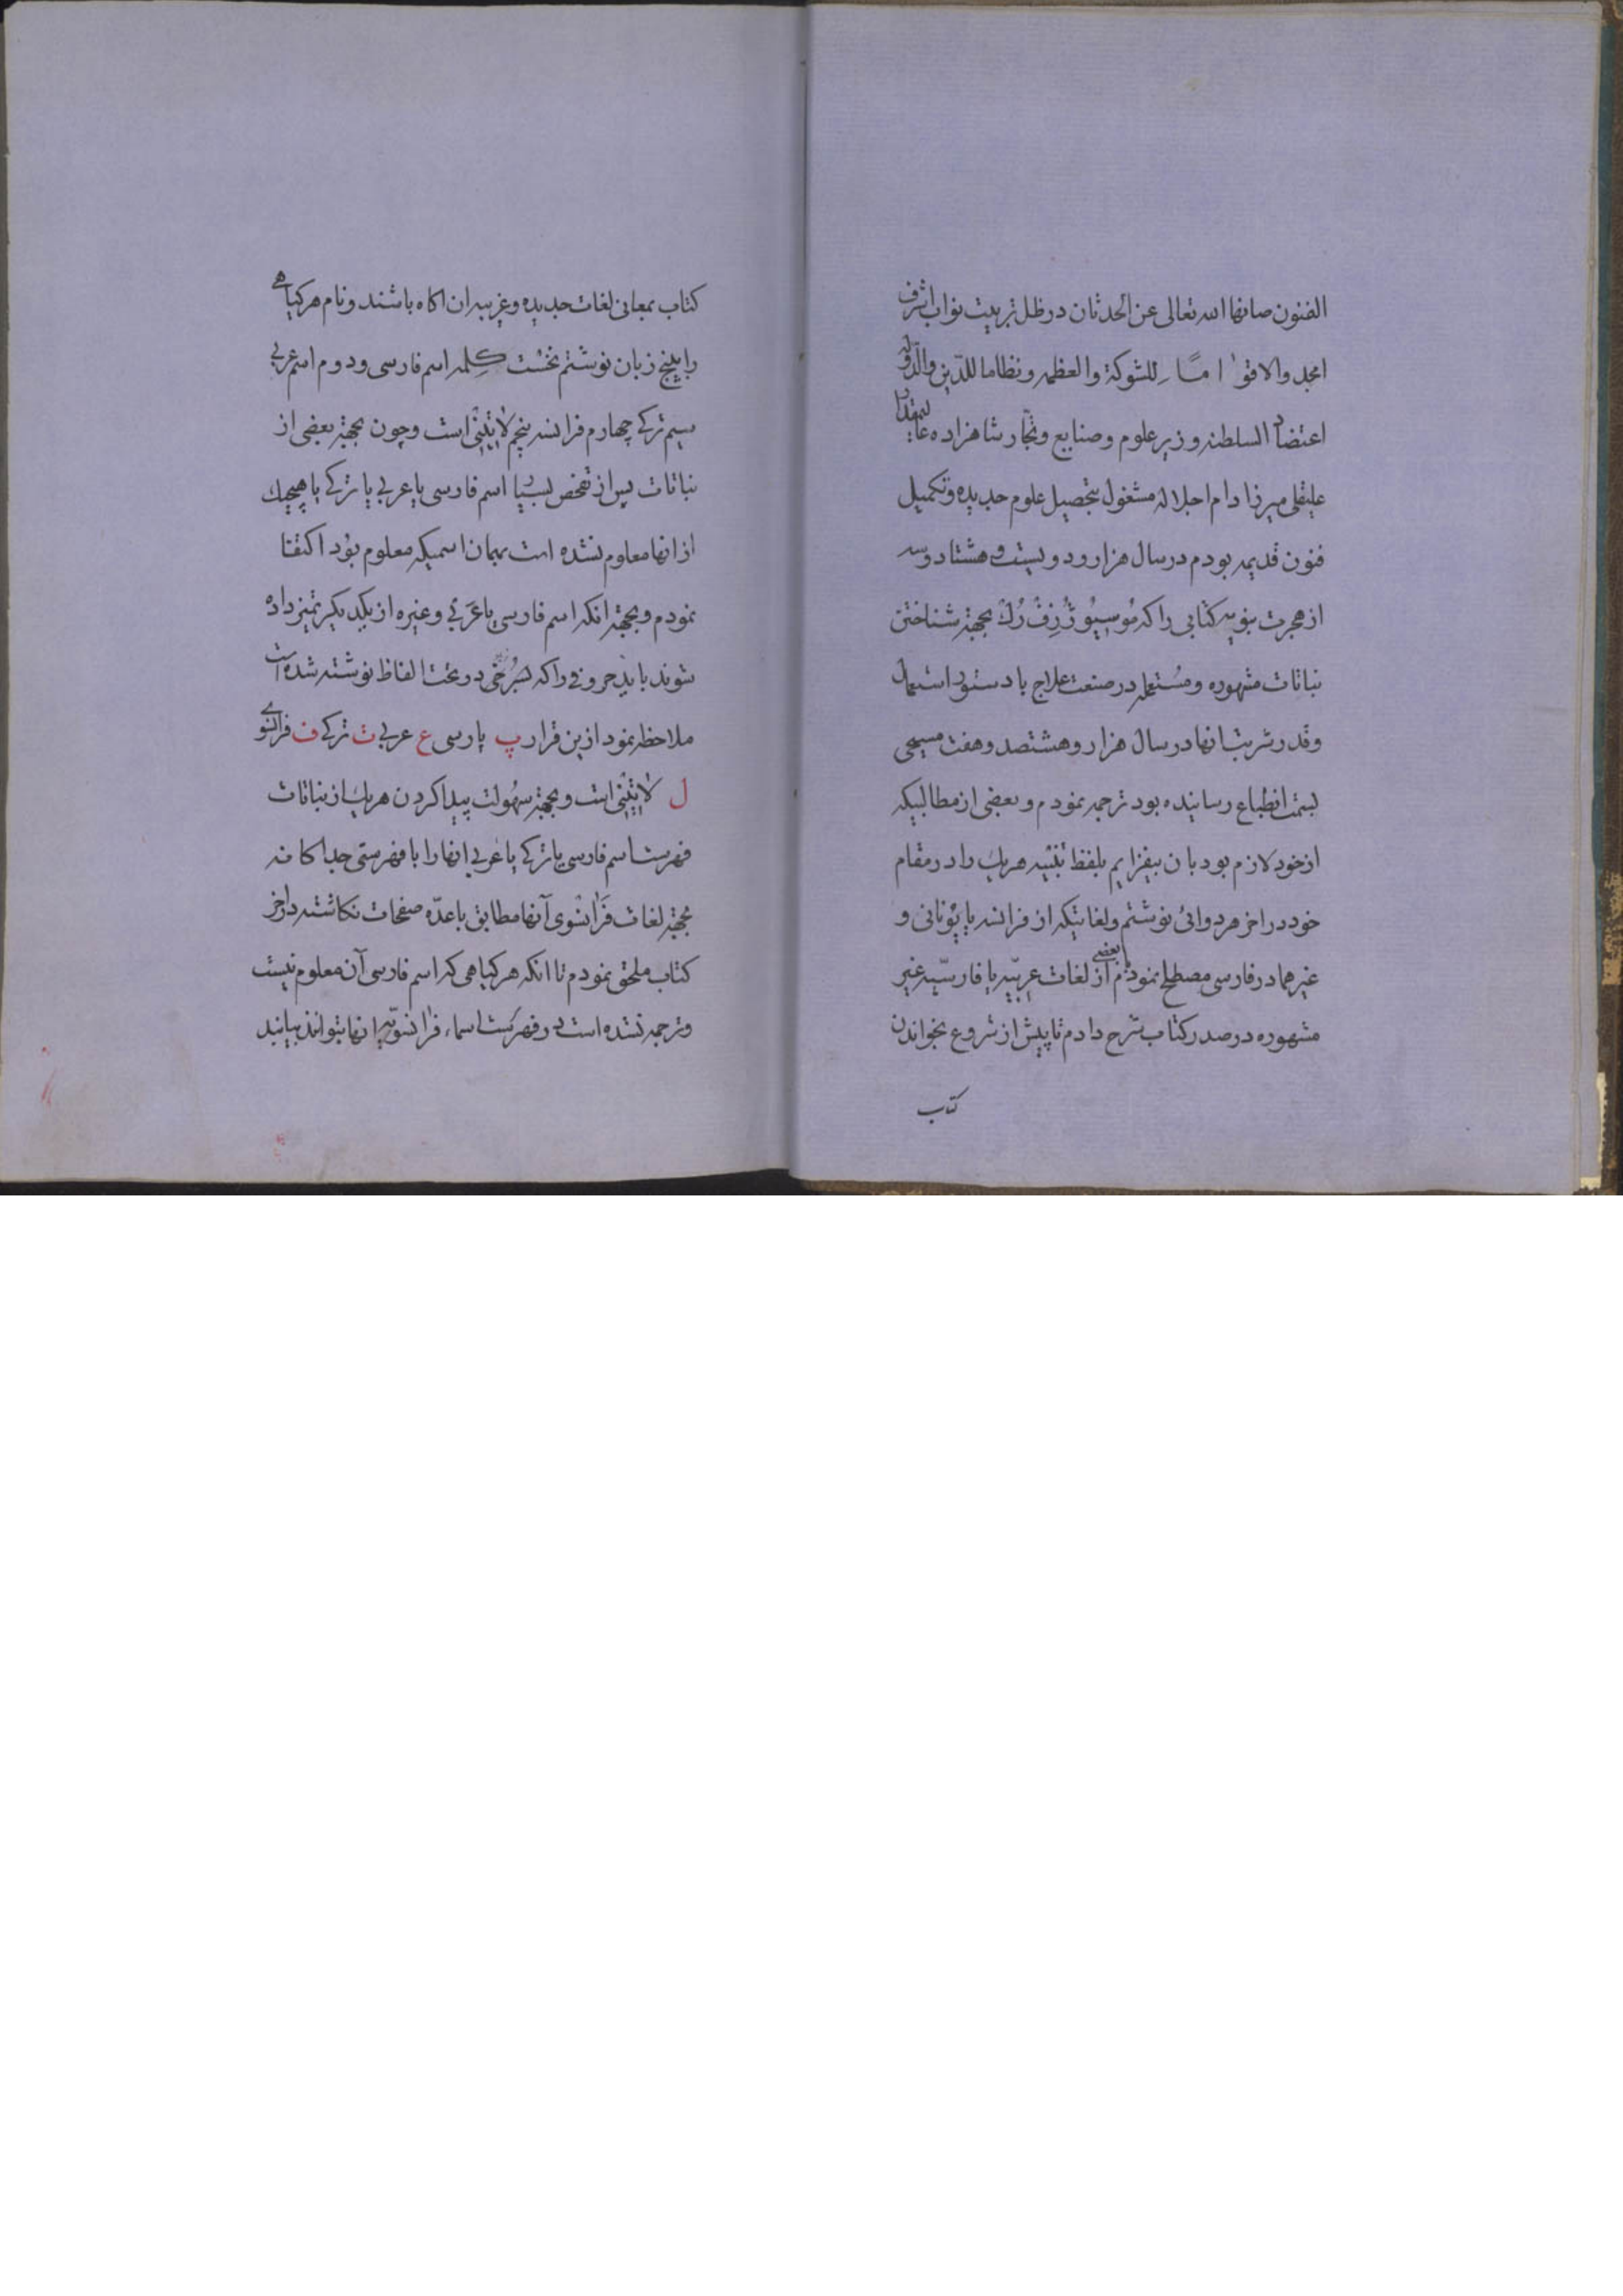 الفنون صانها الله تعالی عن الحدثان در ظل تربیت نواب اشرف
امجد والا قوٰاماً للشوکة والعظمه ونظاما للدّین والدّوله
اعتضاد السلطنه وزیر علوم وصنایع وتجّار شاهزاده
علیقلی میرزا دام اجلاله مشغول بتحصیل علوم جدیده وتکمیل
فنون قدیمه بودم در سال هزار ودویست وهشتاد وسه
از هجرت نبویه کتابی را که مُوسیُو بجهة شناختن
نباتات مشهوره ومُستعمله در صنعت علاج با دستور استعمال
وقدر شربت انها در سال هزار وهشتصد وهفت مسیحی
بسمت انطباع رسانیده بود ترجمه نمودم وبعضی از مطالبیکه
از خود لازم بود بان بیفزایم بلفظ تنبیه هریک را در مقام
خود در اخر هر دوائی نوشتم ولغاتیکه از فرانسه یا یُونانی و
غیرهما در فارسی مصطلح نمودم با بعضی از لغات عربیّه یا فارسیّه غیر
مشهوره در صدر کتاب شرح دادم تا پیش از شروع بخواندن
کتاب
کتاب بمعانی لغات جدیده وغریبه ان اکاه باشند ونام هر کیاهی
را بپنج زبان نوشتم نخُست کلِمه اسم فارسی ودوم اسم عربی
سیم ترکی چهارم فرانسه پنجم لاٰتِینی است وچون بجهة بعضی از
نباتات پس از تفحّص بسیار اسم فارسی یا عربی یا ترکی یا هیچیك
از انها معلوم نشده است بهمان اسمیکه معلوم بوُد اکتفا
نمودم وبجهة انکه اسم فارسی یا عَربی وغیره از یکدیکر تمیز داده
شوند باید حروفی را که بسُرخی در تحت الفاظ نوشته شده است
ملاحظه نمود ازین قرار پ پارسی ع عربی ت ترکی ف فرانسوی
ل لاٰتِینی است وبجهة سهُولت پیدا کردن هریك از نباتات
فهرست اسم فارسی یا ترکی یا عَربی انها را با فهرستی جداکانه
بجهة لغات فَرانسوی آنها مطابق با عدّه صفحات نکاشته در اخر
کتاب ملحق نمودم تا انکه هر کیاهی که اسم فارسی آن معلوم نیست
وترجمه نشده است در فهرست اسماء فرٰانسویّه انها بتوانند بیابند